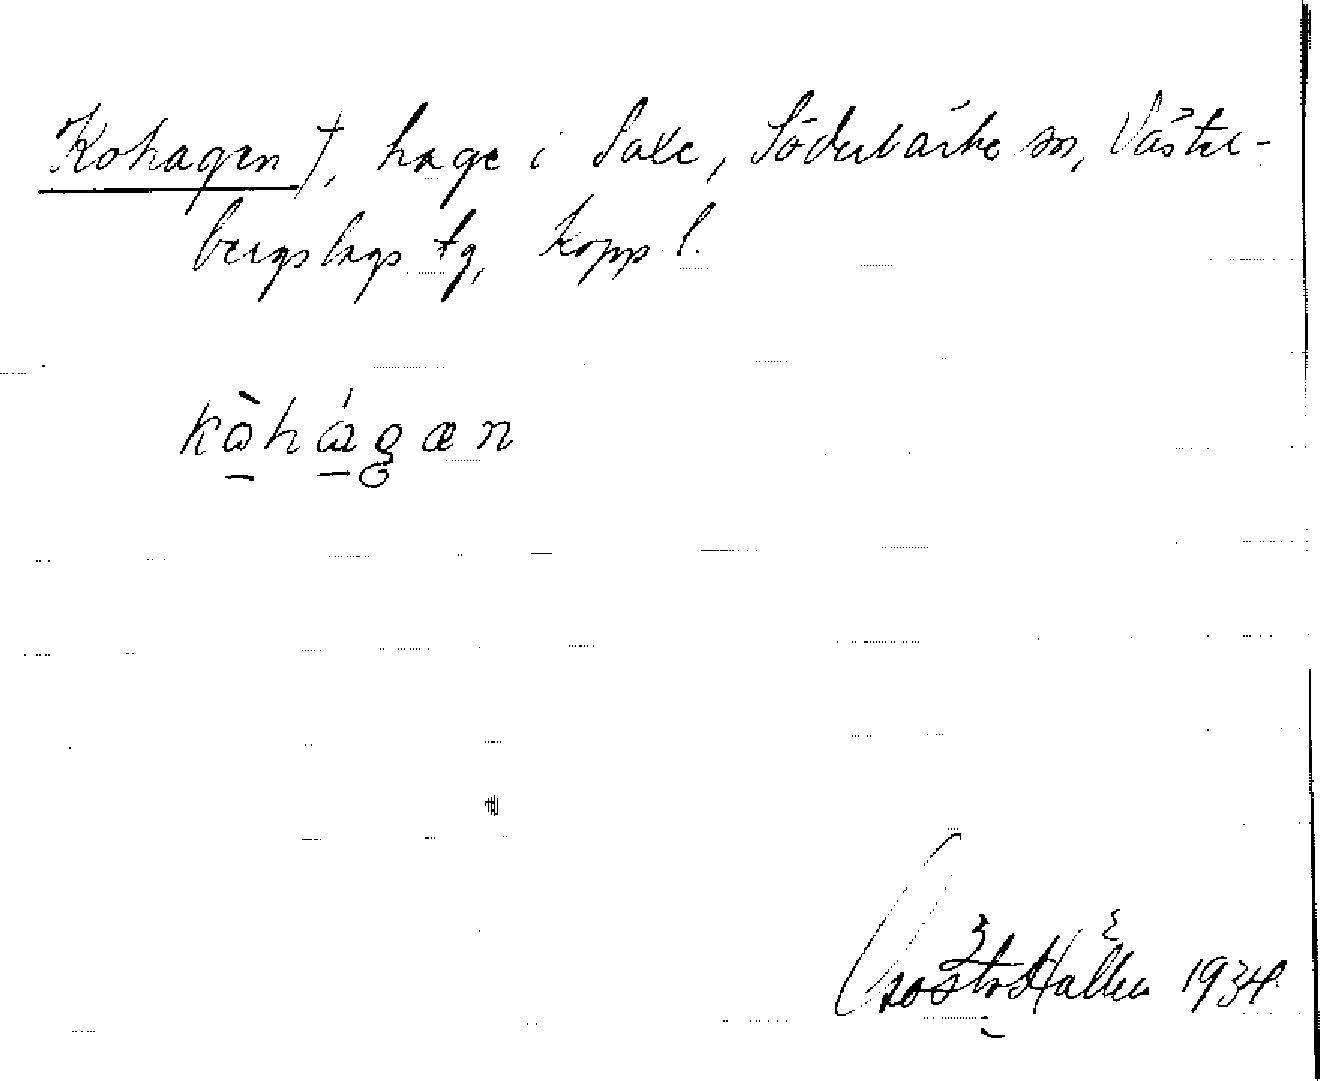 Kohagen †, hage i Saxe, Söderbärke sn, Väster-
bergslags tg, Kopp l.
kòhágæn
Hallén 1934